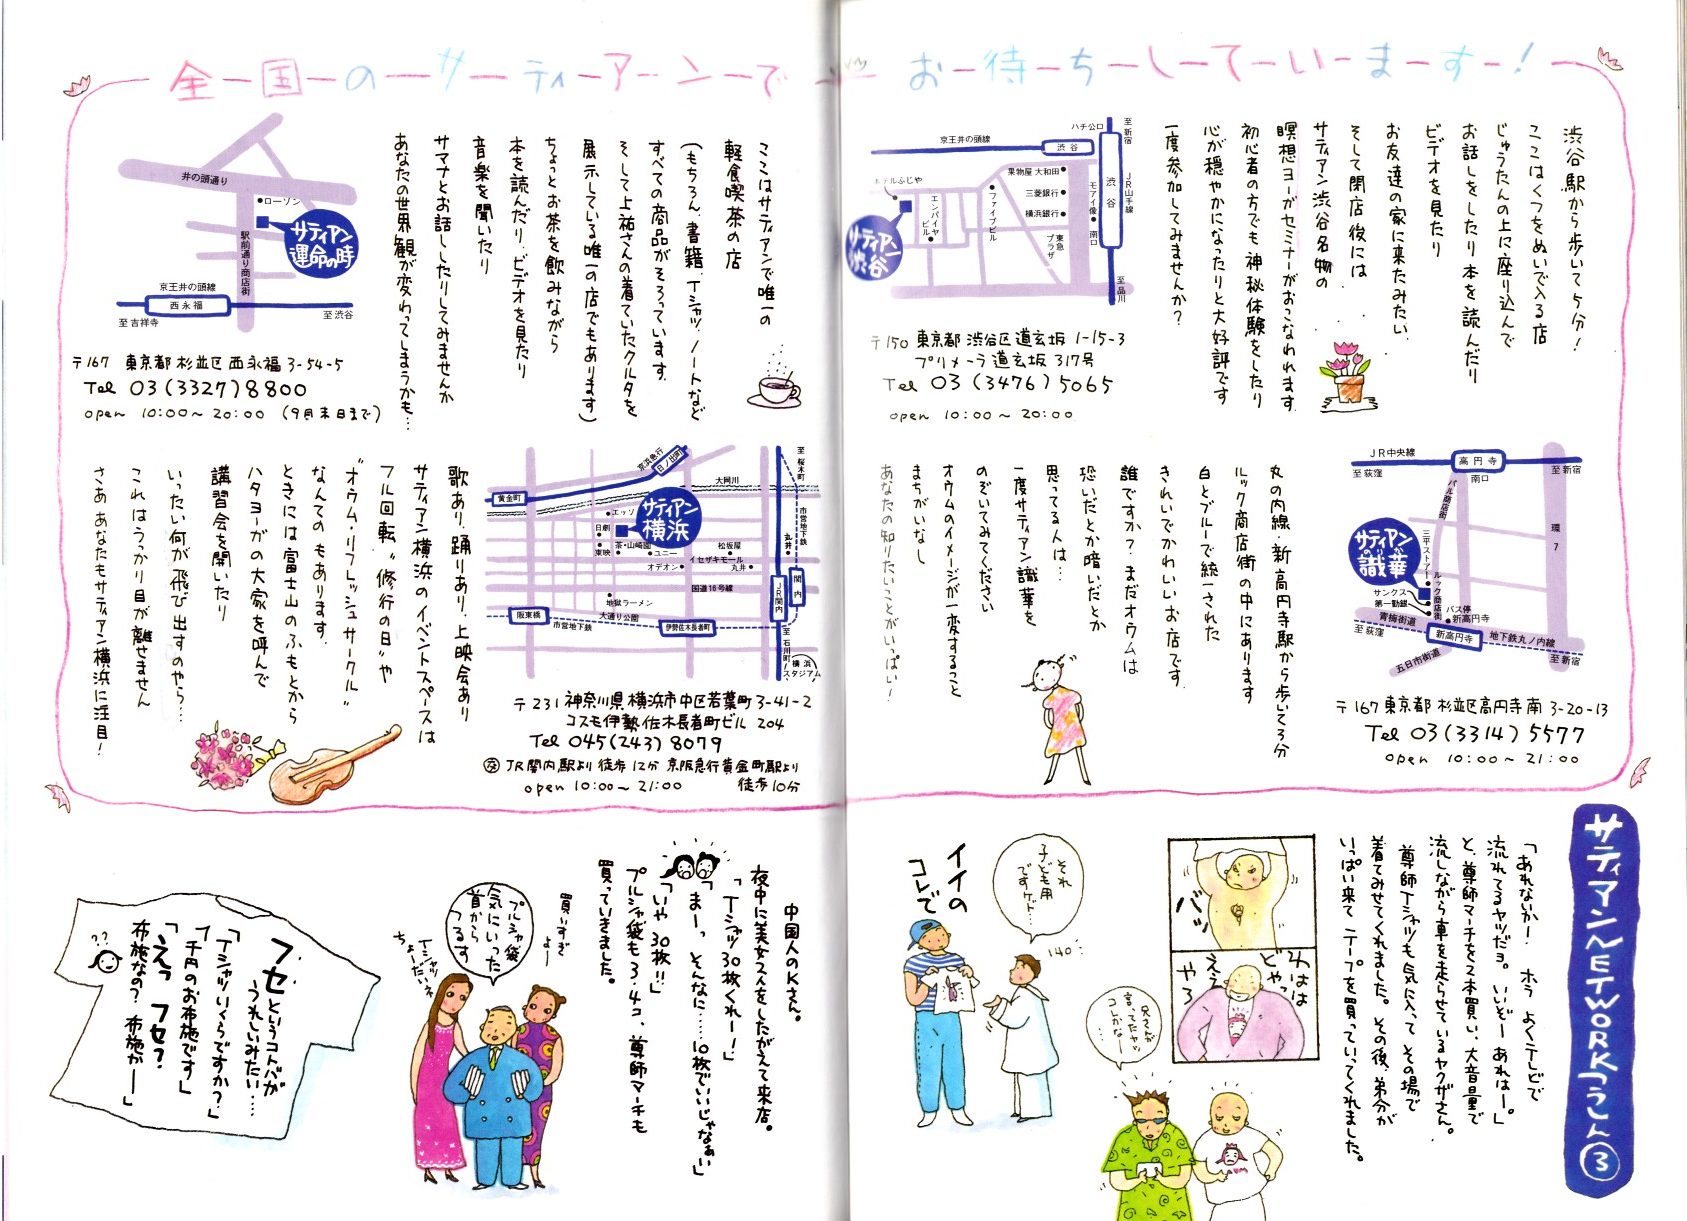 全国のサティアンで お待ちしています!
渋谷駅から歩いて5分!
ここはくつをぬいで入る店
じゅうたんの上に座り込んで
お話しをしたり本を読んだり
ビデオを見たり
お友達の家に来たみたい
そして閉店後には
サティアン渋谷名物の
瞑想ヨーガセミナーがおこなわれます
初心者の方でも神秘体験をしたり
心が穏やかになったりと大好評です
一度参加してみませんか?
至新宿
ハチ公口
京王井の頭線
渋谷
渋谷
JR山手線
果物屋 大和田
三菱銀行
横浜銀行
モアイ像
南口
東急プラザ
ファイブビル
エンパイヤビル
ホテルふじや
サティアン渋谷
至品川
〒150 東京都 渋谷区 道玄坂 1-15-3
プリメーラ道玄坂 317号
Tel 03(3476)5065
open 10:00~20:00
ここはサティアンで唯一の
軽食喫茶の店
(もちろん、書籍、Tシャツ、ノートなど
すべての商品がそろっています。
そして上祐さんの着ていたクルタを
展示している唯一の店でもあります)
ちょっとお茶を飲みながら
本を読んだり、ビデオを見たり
音楽を聞いたり
サマナとお話ししたりしてみませんか
あなたの世界観が変わってしまうかも…
井の頭通り
ローソン
サティアン運命の時
駅前通り商店街
京王井の頭線
西永福
至吉祥寺
至渋谷
〒167 東京都 杉並区 西永福 3-54-5
Tel 03(3327)8800
open 10:00~20:00 (9月末日まで)
JR中央線
高円寺
至荻窪
南口
至新宿
パル商店街
環7
サティアンの識華
三平ストアー
ルック商店街
サンクス
第一勧銀
バス停
新高円寺
青梅街道
至荻窪
新高円寺
地下鉄丸ノ内線
至新宿
五日市街道
〒167 東京都 杉並区高円寺南 3-20-13
Tel 03(3314)5577
open 10:00~21:00
丸の内線・新高円寺駅から歩いて3分
ルック商店街の中にあります
白とブルーで統一された
きれいでかわいいお店です
誰ですか?まだオウムは
恐いだとか暗いだとか
思ってる人は…
一度サティアン識華を
のぞいてみてください
オウムのイメージが一変すること
まちがいなし
あなたの知りたいことがいっぱい!
至桜木町
京浜急行
日ノ出町
黄金町
大岡川
市営地下鉄
エッソ
サティアン横浜
日劇
東映
茶・山崎園
ユニー
松坂屋
丸井
イセザキモール
オデオン
丸井
国道16号線
JR関内
関内
地獄ラーメン
大通り公園
阪東橋
市営地下鉄
伊勢佐木長者町
至石川町
横浜スタジアム
〒231 神奈川県 横浜市中区若葉町3-41-2
コスモ伊勢佐木長者町ビル 204
Tel 045(243)8079
交 JR関内駅より徒歩12分 京阪急行黄金町駅より
徒歩10分
open 10:00~21:00
歌あり、踊りあり、上映会あり
サティアン横浜のイベントスペースは
フル回転“修行の日”や
“オウム・リフレッシュサークル”
なんてのもあります。
ときには富士山のふもとから
ハタヨーガの大家を呼んで
講習会を開いたり
いったい何が飛び出すのやら…
これはうっかり目が離せません
さああなたもサティアン横浜に注目!
サティアンNETWORKつうしん③
「あれないかー!ホラ よくテレビで
流れてるヤツだョ。いいぞーあれはー。」
と、尊師マーチを2本買い、大音量で
流しながら車を走らせているヤクザさん。
尊師Tシャツも気に入って その場で
着てみせてくれました。その後、弟分が
いっぱい来て テープを買っていってくれました。
バッ
わはは
どやっ
ええ
やろ
兄さんが
言ってたヤツ
コレかなー
それ
子ども用
ですケド…
140…
イイの
コレで
中国人のKさん。
夜中に美女2人をしたがえて来店。
「Tシャツ30枚くれー!」
「まーっ そんなに……10枚でいいじゃなぁい」
「いや 30枚!!」
プルシャ袋も3・4コ、尊師マーチも
買っていきました。
買いすぎよー
プルシャ袋
気にいった
首から
つるす
Tシャツ
ちょーだいネ
フセというコトバが
うれしいみたい……
「Tシャツいくらですか?」
「千円のお布施です」
「えっ フセ?
布施なの?布施かー」
??